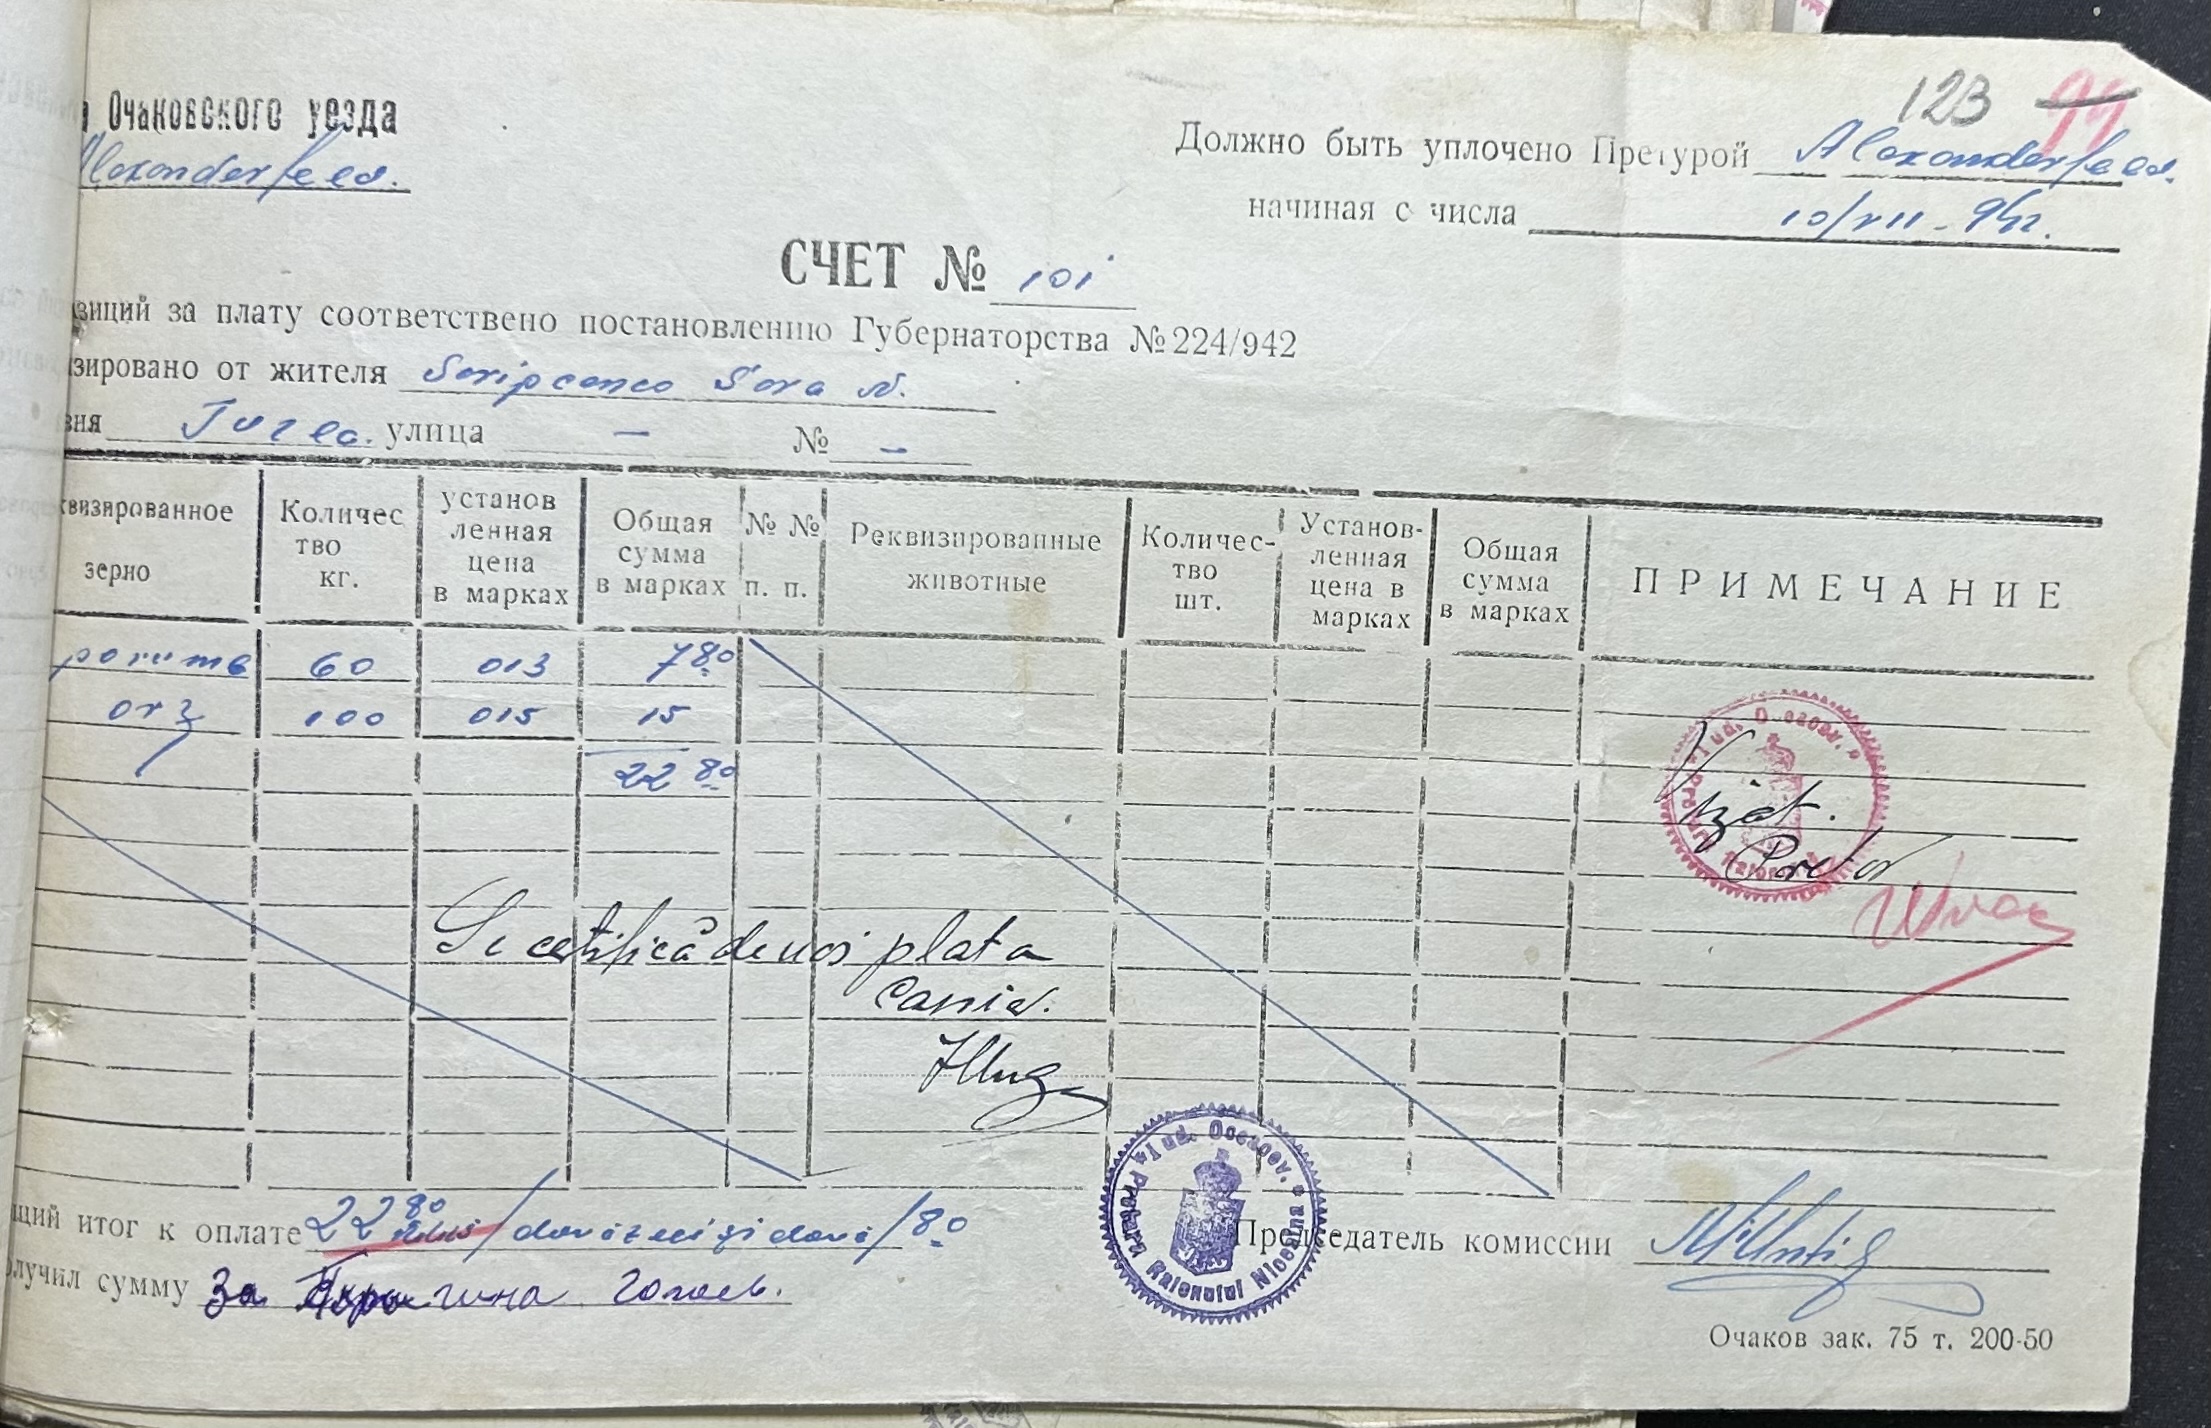 123 99
Очаковского уезда
Alexanderfeld.
Должно быть уплочено Претурой Alexanderfeld.
начиная с числа 10/VII-942.
СЧЕТ № 101
зиций за плату соответствено постановлению Губернаторства №224/942
зировано от жителя Soripcenco Sora N.
вня улица — № —
квизированное зерно Количес тво кг. установ ленная цена в марках Общая сумма в марках № № п. п. Реквизированные животные Количес- тво шт. Установ- ленная цена в марках Общая сумма в марках ПРИМЕЧАНИЕ
60 013 7 80
orz 100 015 15
22 80
Vizat.
Pretor
Se certifică de noi plata
Iud. Oceacov. Pretura Raionului
щий итог к оплате 22 80 /douăzeci și două/80
Председатель комиссии
Iud. Oceacov. Pretura Raionului
лучил сумму За
Очаков зак. 75 т. 200-50